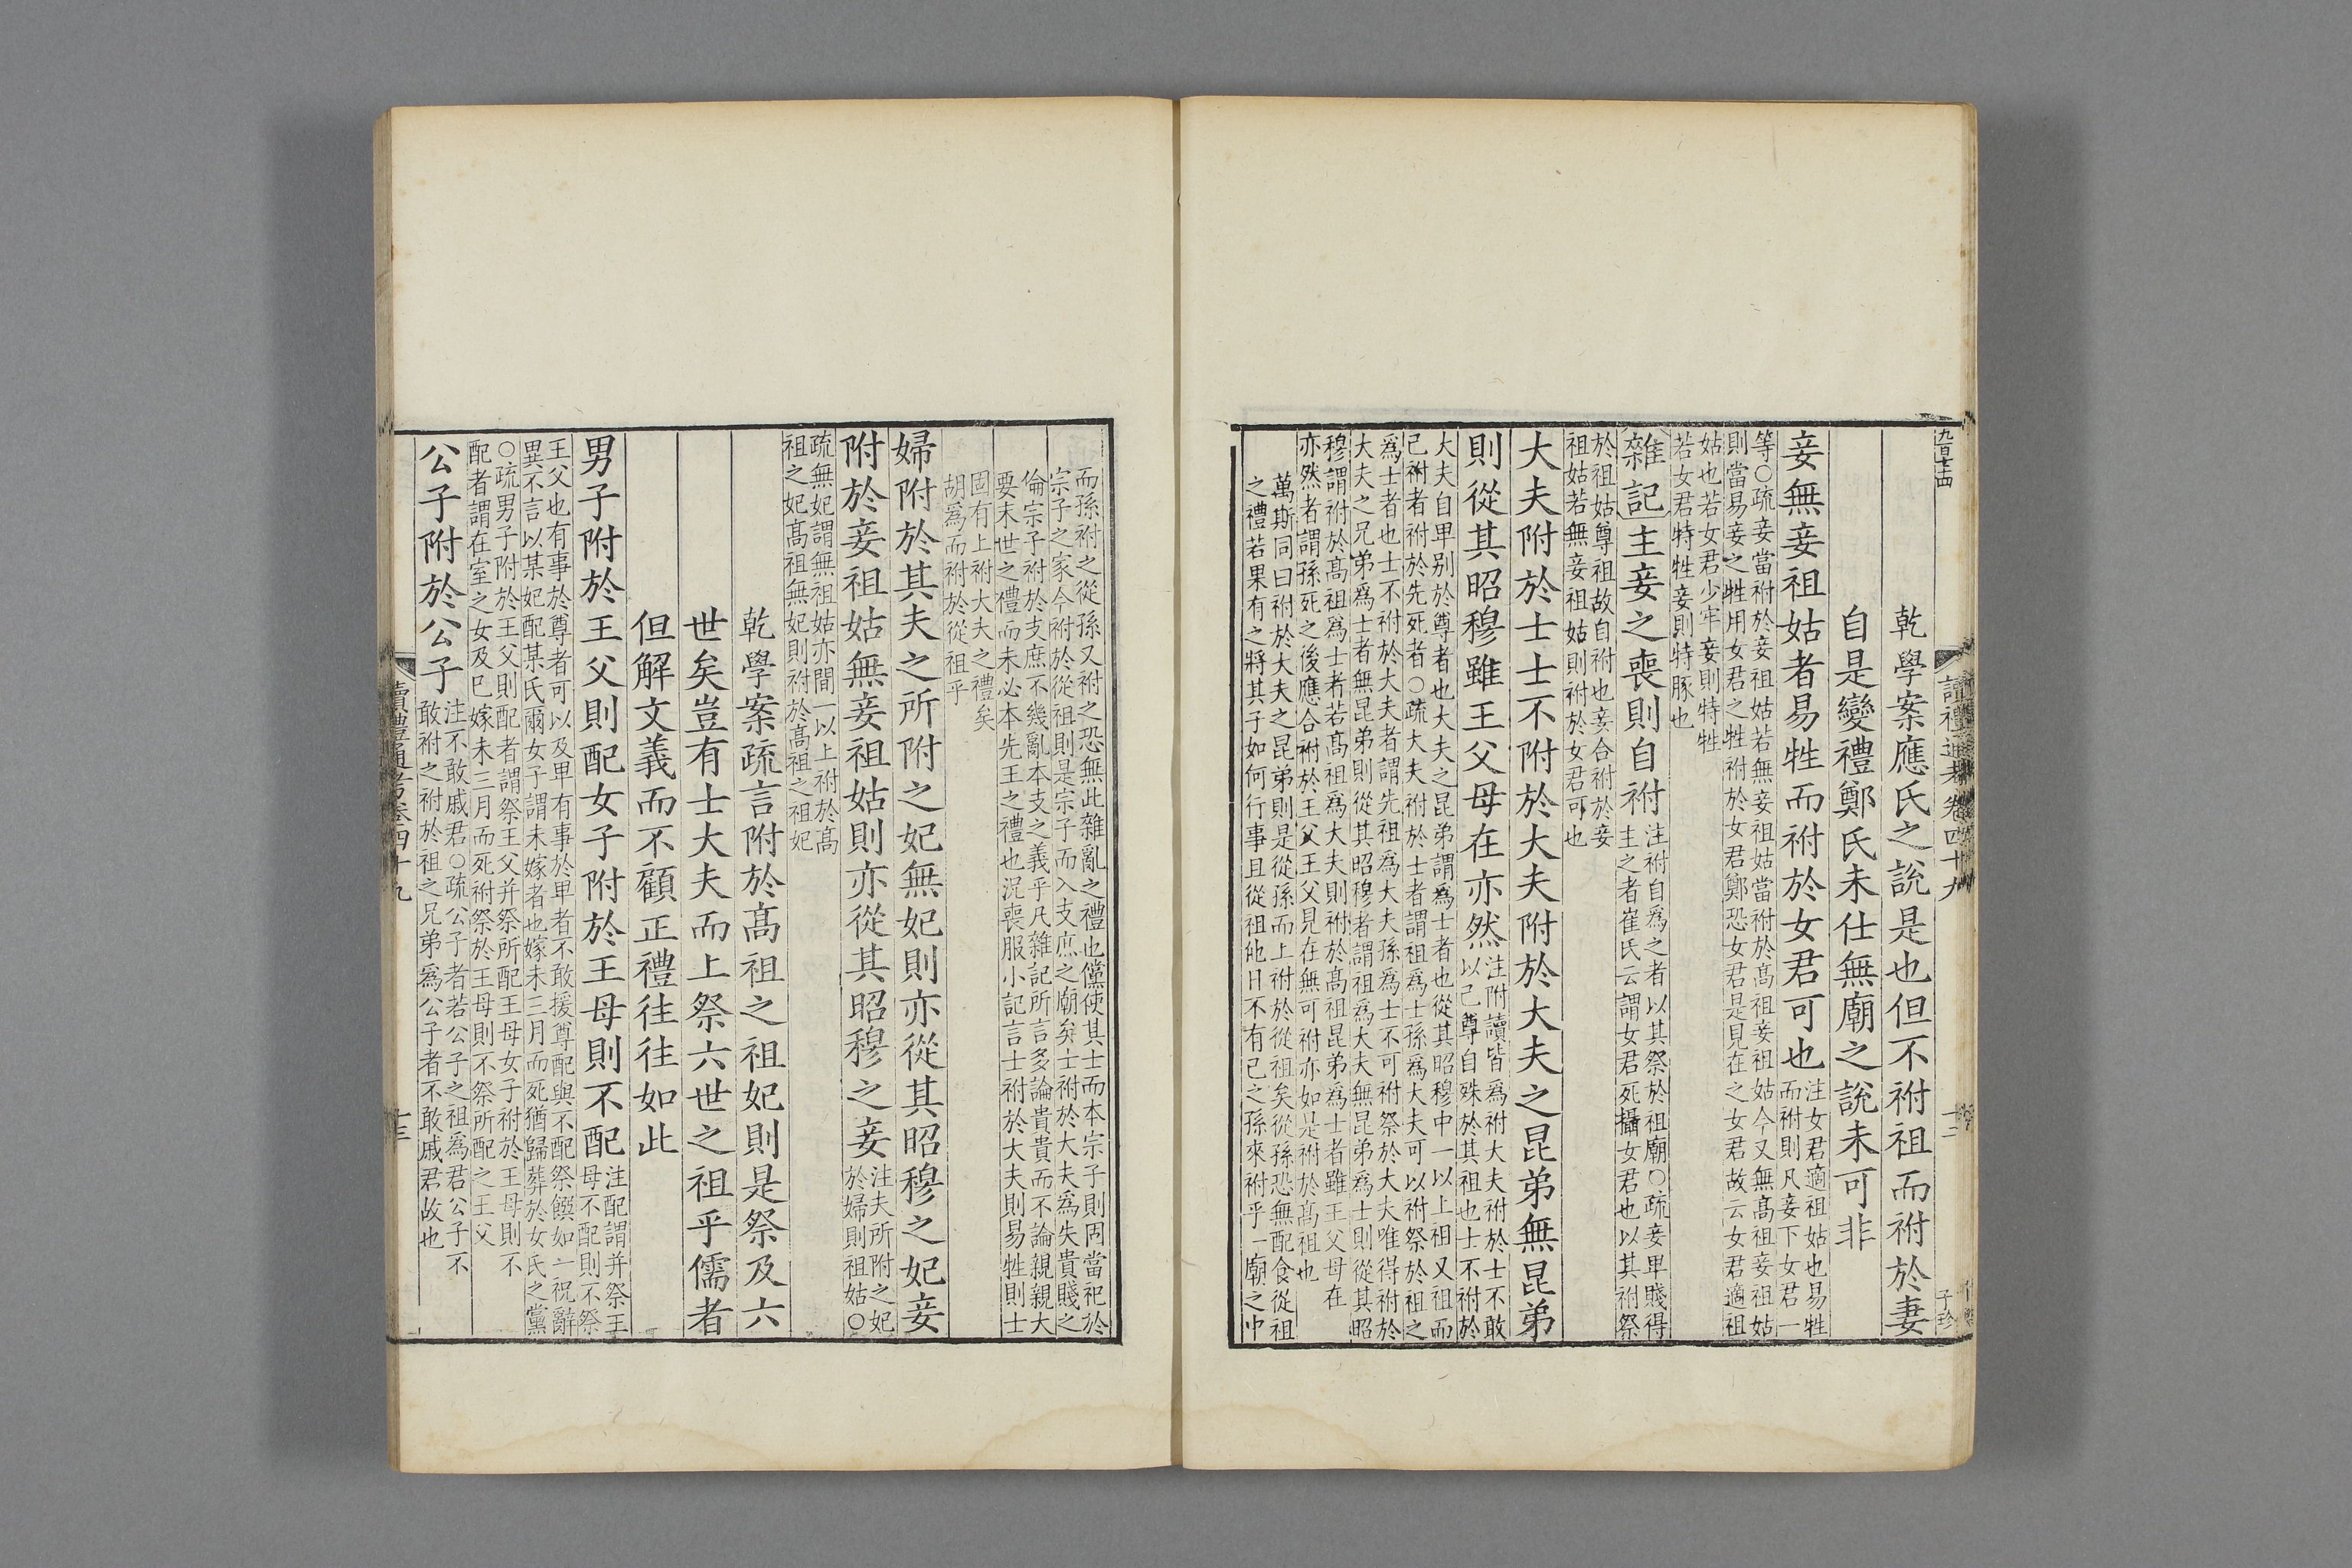 九百七十四
讀禮通考卷四十九
十二
子珍
乾學案應氏之說是也但不祔祖而祔於妻
自是變禮鄭氏未仕無廟之說未可非
妾無妾祖姑者易牲而祔於女君可也
注女君適祖姑也易牲
而祔則凡妾下女君一
等○疏妾當祔於妾祖姑若無妾祖姑當祔於高祖妾祖姑今又無高祖妾祖姑
則當易妾之牲用女君之牲祔於女君鄭恐女君是見在之女君故云女君適祖
姑也若女君少牢妾則特牲
若女君特牲妾則特豚也
雜記主妾之喪則自祔
注祔自為之者以其祭於祖廟○疏妾卑賤得
主之者崔氏云謂女君死攝女君也以其祔祭
於祖姑尊祖故自祔也妾合祔於妾
祖姑若無妾祖姑則祔於女君可也
大夫附於士士不附於大夫附於大夫之昆弟無昆弟
則從其昭穆雖王父母在亦然
注附讀皆為祔大夫祔於士不敢
以己尊自殊於其祖也士不祔於
大夫自卑别於尊者也大夫之昆弟謂爲士者也從其昭穆中一以上祖又祖而
已祔者祔於先死者○疏大夫祔於士者謂祖爲士孫爲大夫可以祔祭於祖之
爲士者也士不祔於大夫者謂先祖爲大夫孫爲士不可祔祭於大夫唯得祔於
大夫之兄弟爲士者無昆弟則從其昭穆者謂祖爲大夫無昆弟爲士則從其昭
穆謂祔於高祖爲士者若高祖爲大夫則祔於高祖昆弟爲士者雖王父母在
亦然者謂孫死之後應合祔於王父王父見在無可祔亦如是祔於高祖也
萬斯同曰祔於大夫之昆弟則是從孫而上祔於從祖矣從孫恐無配食從祖
之禮若果有之將其子如何行事且從祖他日不有己之孫來祔乎一廟之中
而孫祔之從孫又祔之恐無此雜亂之禮也儻使其士而本宗子則固當祀於
宗子之家今祔於從祖則是宗子而入支庶之廟矣士祔於大夫爲失貴賤之
倫宗子祔於支庶不幾亂本支之義乎凡雜記所言多論貴貴而不論親親大
要末世之禮而未必本先王之禮也況喪服小記言士祔於大夫則易牲則士
固有上祔大夫之禮矣
胡爲而祔於從祖乎
婦附於其夫之所附之妃無妃則亦從其昭穆之妃妾
附於妾祖姑無妾祖姑則亦從其昭穆之妾
注夫所附之妃
於婦則祖姑○
疏無妃謂無祖姑亦間一以上祔於高
祖之妃高祖無妃則祔於高祖之祖妃
乾學案疏言附於高祖之祖妃則是祭及六
世矣豈有士大夫而上祭六世之祖乎儒者
但解文義而不顧正禮往往如此
男子附於王父則配女子附於王母則不配
注配謂并祭王
母不配則不祭
王父也有事於尊者可以及卑有事於卑者不敢援尊配與不配祭饌如一祝辭
異不言以某妃配某氏爾女子謂未嫁者也嫁未三月而死猶歸葬於女氏之黨
○疏男子附於王父則配者謂祭王父并祭所配王母女子祔於王母則不
配者謂在室之女及已嫁未三月而死祔祭於王母則不祭所配之王父
公子附於公子
注不敢戚君○疏公子者若公子之祖爲君公子不
敢祔之祔於祖之兄弟爲公子者不敢戚君故也
讀禮通考卷四十九
十三